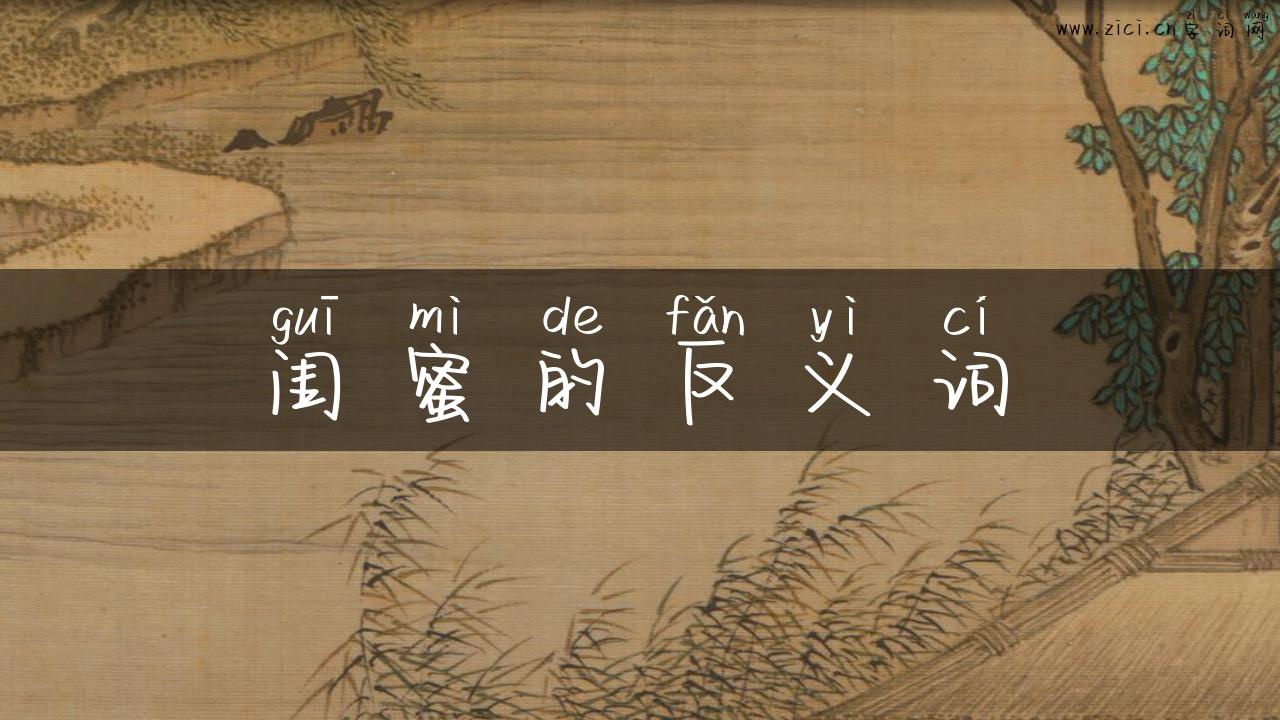 zì cí wǎng
www.zici.cn字词网
guī mì de fǎn yì cí
闺蜜的反义词